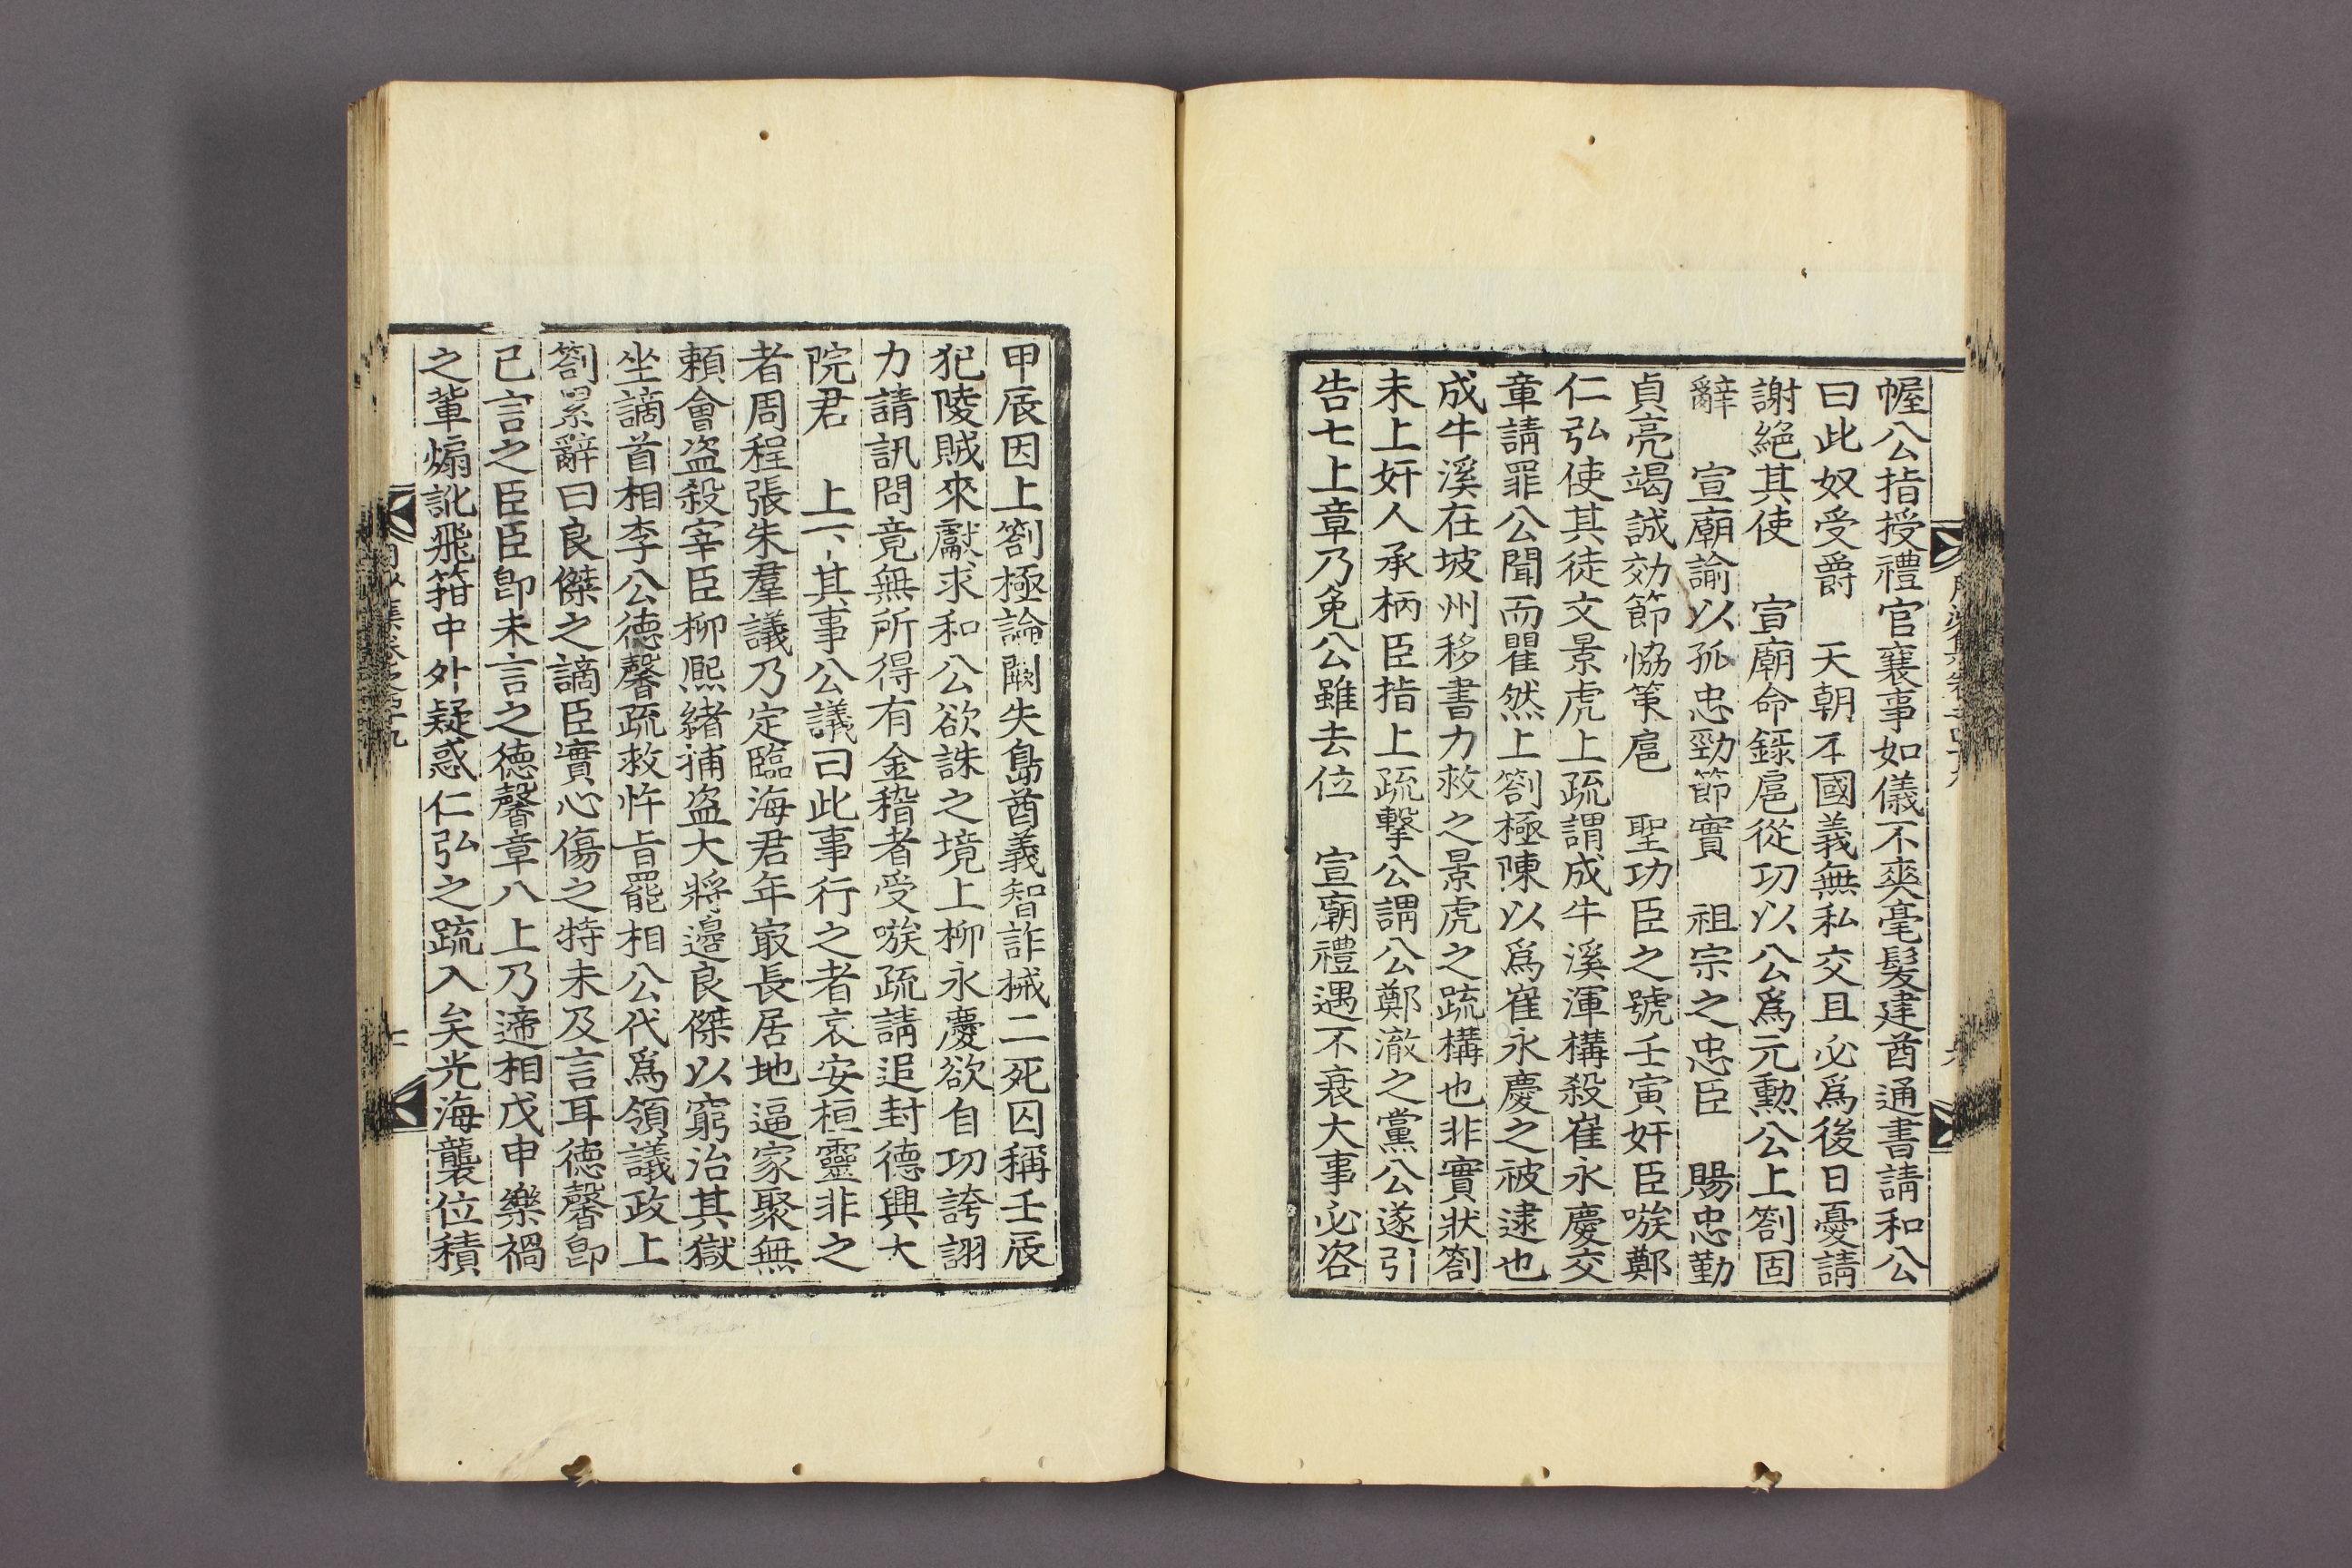 幄公指授禮官襄事如儀不爽毫髮建酋通書請和公
曰此奴受爵 天朝不國義無私交且必爲後日憂請
謝絶其使 宣廟命錄扈從功以公爲元勳公上箚固
辭 宣廟諭以孤忠勁節實 祖宗之忠臣 賜忠勤
貞亮竭誠効節恊策扈 聖功臣之號壬寅奸臣嗾鄭
仁弘使其徒文景虎上疏謂成牛溪渾構殺崔永慶交
章請罪公聞而瞿然上箚極陳以爲崔永慶之被逮也
成牛溪在坡州移書力救之景虎之疏構也非實狀箚
未上奸人承柄臣指上疏擊公謂公鄭澈之黨公遂引
告七上章乃免公雖去位 宣廟禮遇不衰大事必咨
甲辰因上箚極論闕失島酋義智詐械二死囚稱壬辰
犯陵賊來獻求和公欲誅之境上柳永慶欲自功誇詡
力請訊問竟無所得有金稽者受嗾疏請追封德興大
院君 上下其事公議曰此事行之者哀安桓靈非之
者周程張朱羣議乃定臨海君年㝡長居地逼家聚無
賴會盗殺宰臣柳熙緖捕盗大將邊良傑以窮治其獄
坐謫首相李公德馨疏救忤旨罷相公代爲領議政上
箚累辭曰良傑之謫臣實心傷之特未及言耳德馨卽
已言之臣臣卽未言之德馨章八上乃遞相戊申樂禍
之輩煽訛飛箝中外疑惑仁弘之疏入矣光海襲位積